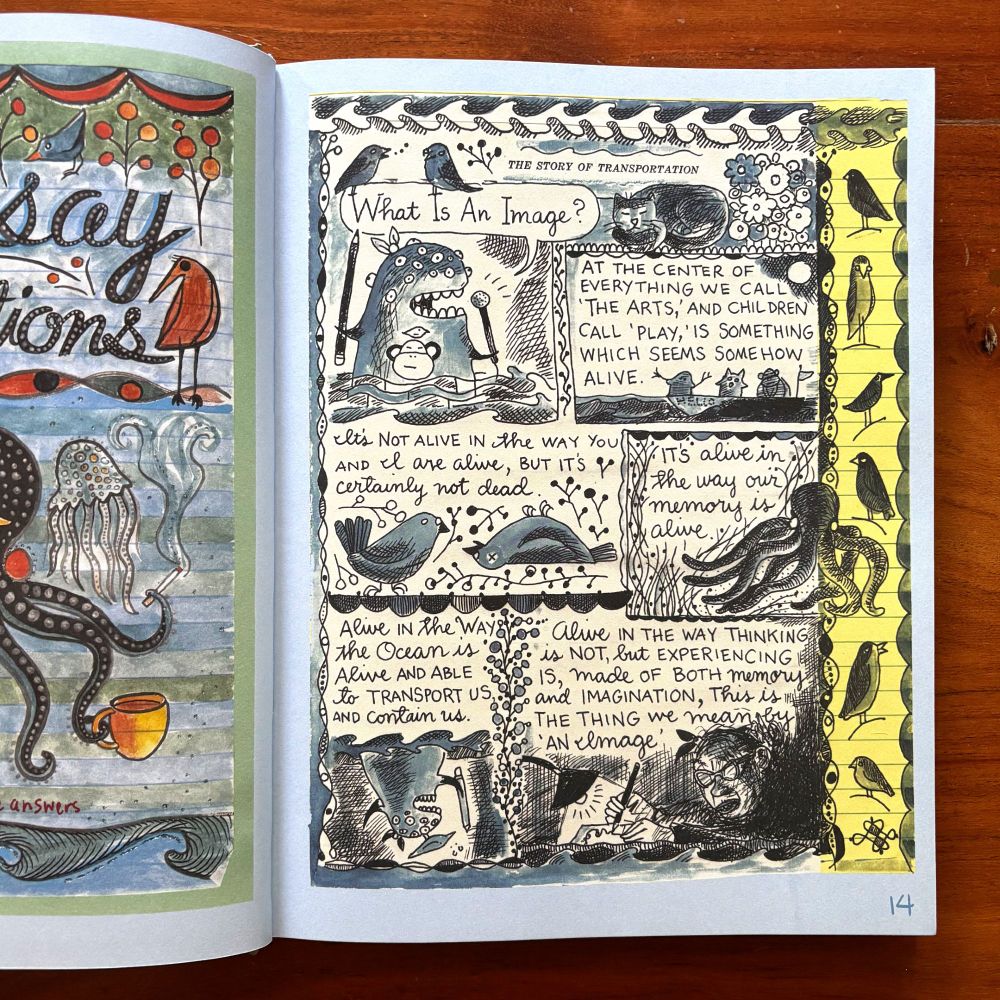 say
tions
answers
THE STORY OF TRANSPORTATION
What Is An Image?
AT THE CENTER OF
EVERYTHING WE CALL
'THE ARTS,' AND CHILDREN
CALL 'PLAY,' IS SOMETHING
WHICH SEEMS SOMEHOW
ALIVE.
HELLO
It's NOT ALIVE IN the WAY YOU
AND I are alive, BUT IT'S
certainly not dead.
IT'S alive in
the way our
memory is
alive.
Alive IN the WAY
the Ocean is
Alive AND ABLE
to TRANSPORT US
AND contain us.
Alive IN THE WAY THINKING
is NOT, but EXPERIENCING
IS, made OF BOTH memory
and IMAGINATION, This is
THE THING we mean by
AN Image.
14